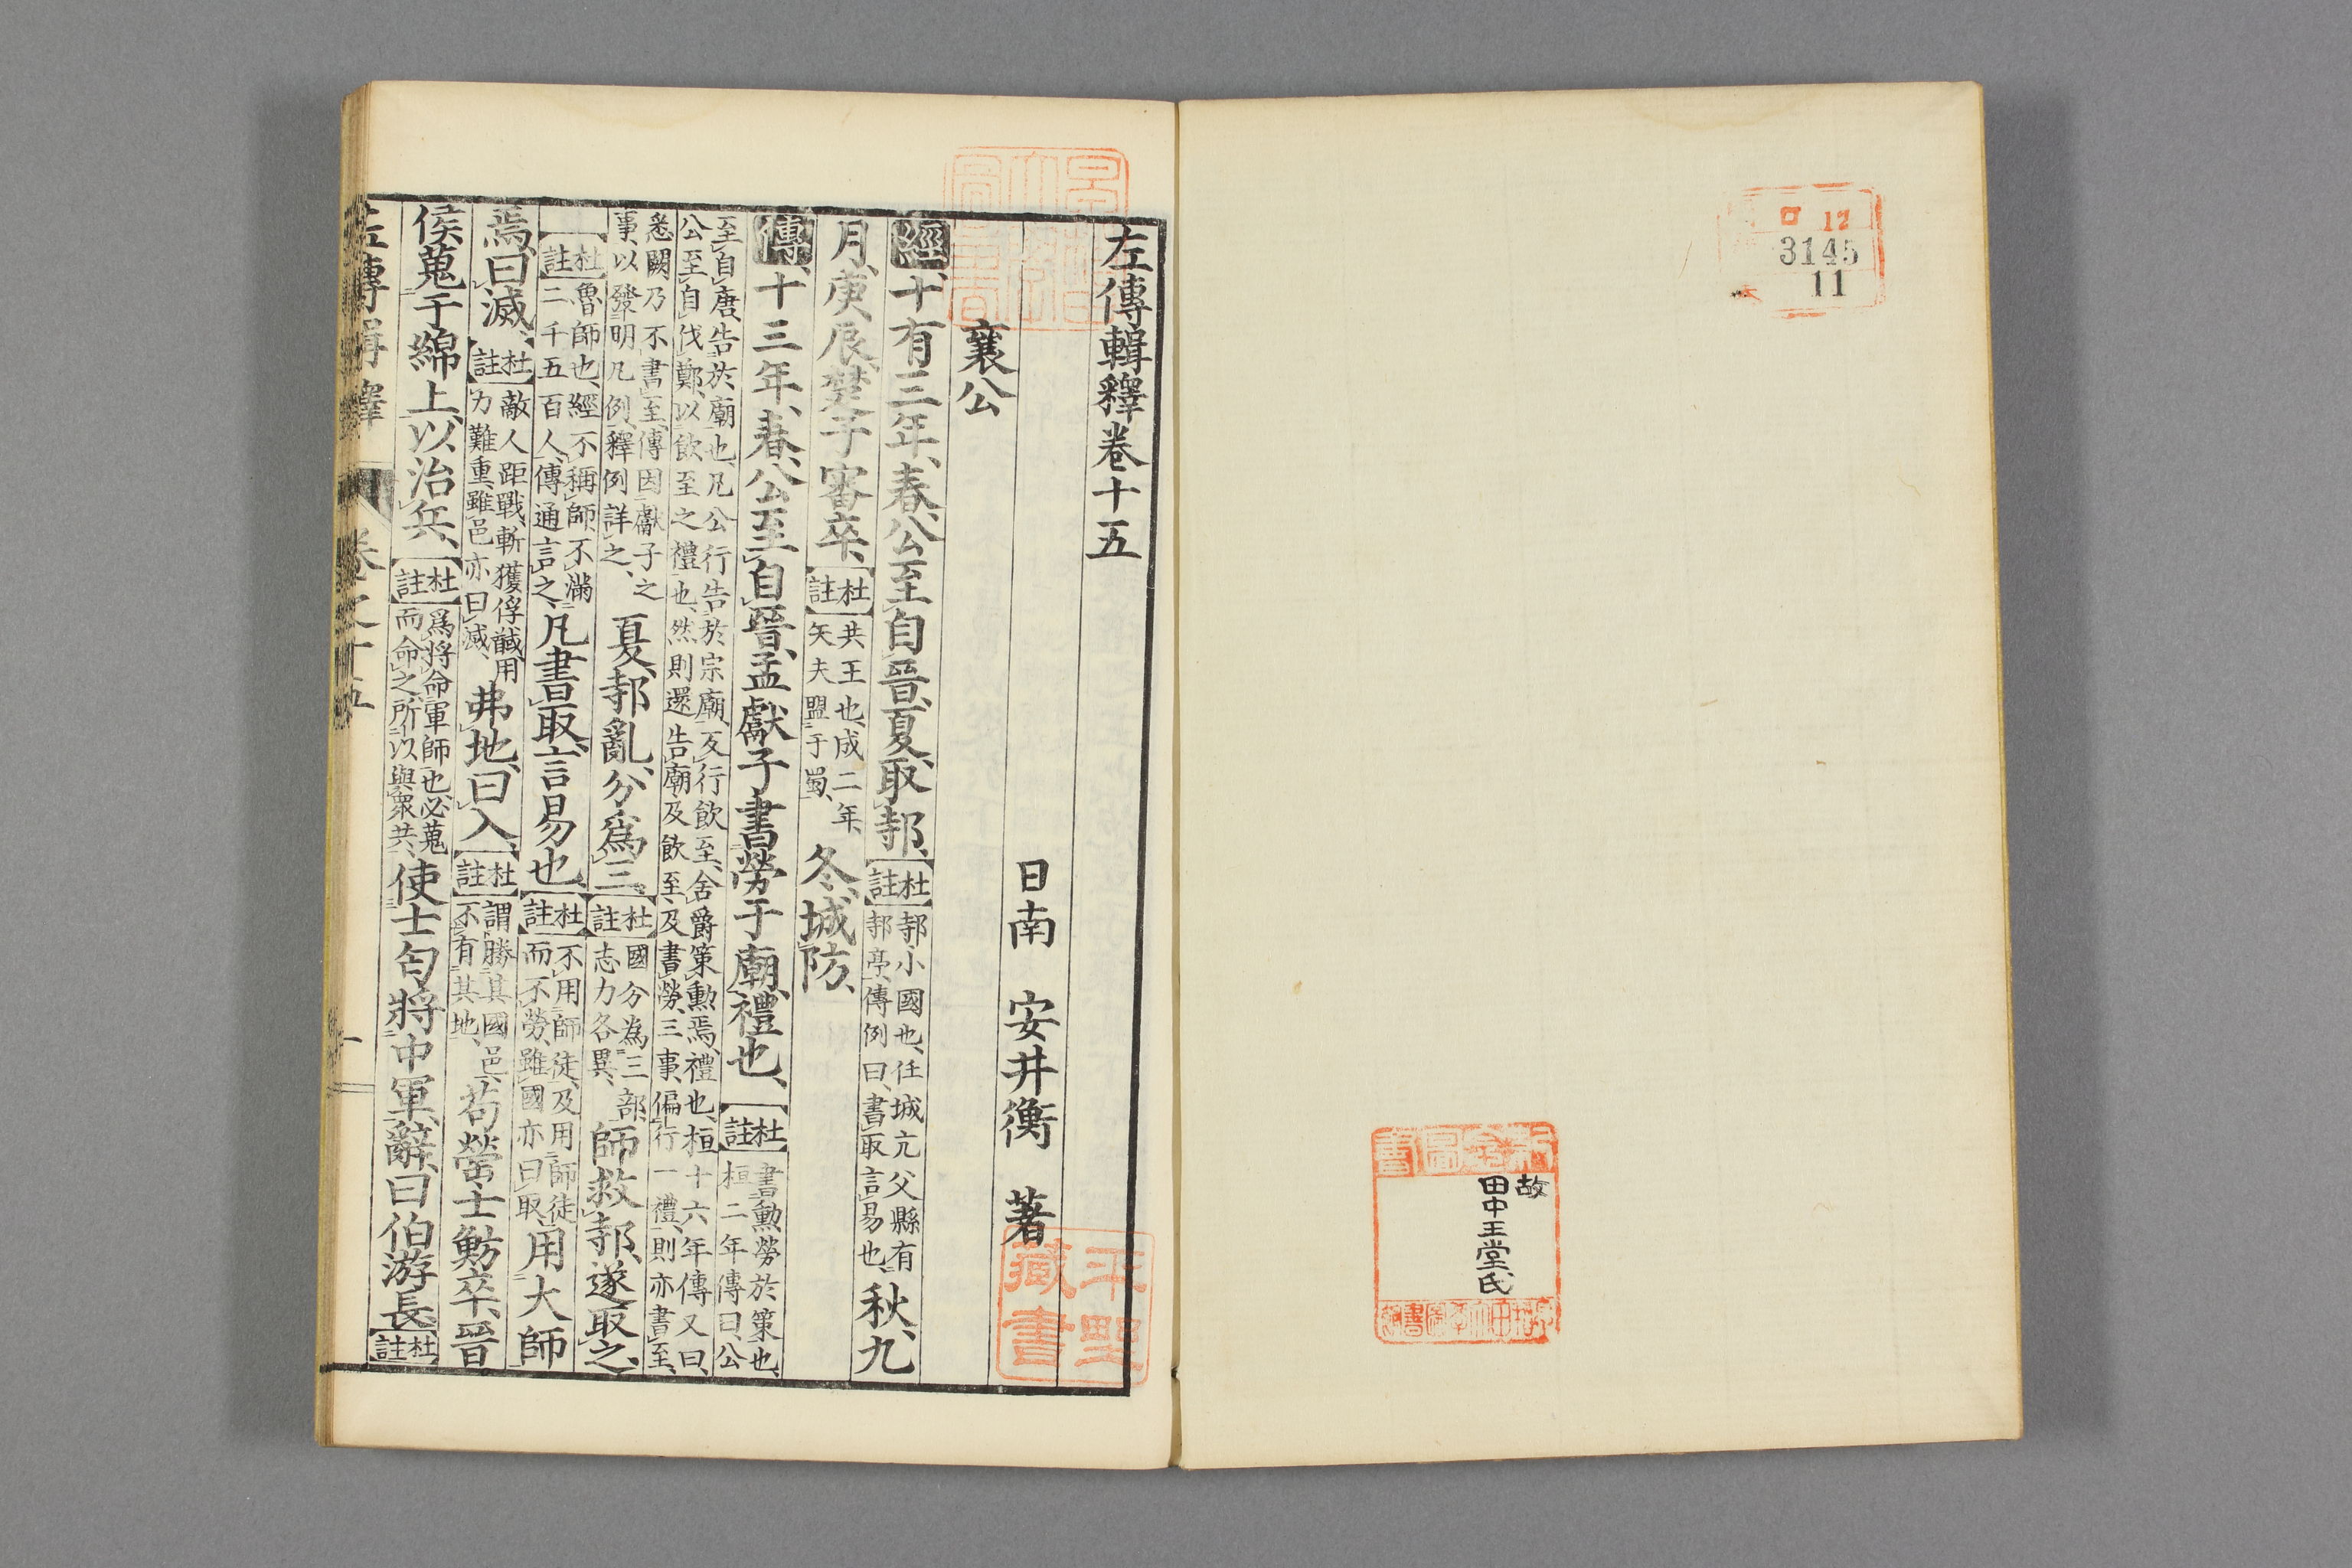 ロ 12
3145
11
故
田中王堂氏
左傳輯釋卷十五
日南 安井衡 著
襄公
經十有三年、春、公至自晉、夏、取邿、【杜註】邿小國也、任城亢父縣有邿亭、傳例曰、書取言易也、秋、九
月、庚辰、楚子審卒、【杜註】共王也、成二年、矢夫盟于蜀、冬、城防、
傳十三年、春、公至自晉、孟獻子書勞于廟、禮也、【杜註】書勳勞於策也、桓二年傳曰、公
至自唐、告於廟也、凡公行告於宗廟、反行飮至、舍爵策勳焉、禮也、桓十六年傳又曰、
公至自伐鄭、以飮至之禮也、然則還告廟、及飮至、及書勞、三事、偏行一禮、則亦書至、
悉闕乃不書至、傳因獻子之事、以發明凡例、釋例詳之、夏、邿亂、分爲三、【杜註】國分為三部志力各異、師救邿、遂取之、
【杜註】魯師也、經不稱師、不滿二千五百人、傳通言之、凡書取、言易也、【杜註】不用師徒、及用師徒而不勞、雖國亦曰取、用大師
焉、曰滅、【杜註】敵人距戰、斬獲俘馘、用力難重、雖邑亦曰滅、弗地、曰入、【杜註】謂勝其國邑、不有其地、荀罃士魴卒、晉
侯蒐于綿上、以治兵、【杜註】爲將命軍師也、必蒐而命之、所以與衆共、使士匄將中軍、辭、曰、伯游長、【杜註】
左傳輯釋 卷之十五 一
平聖藏書